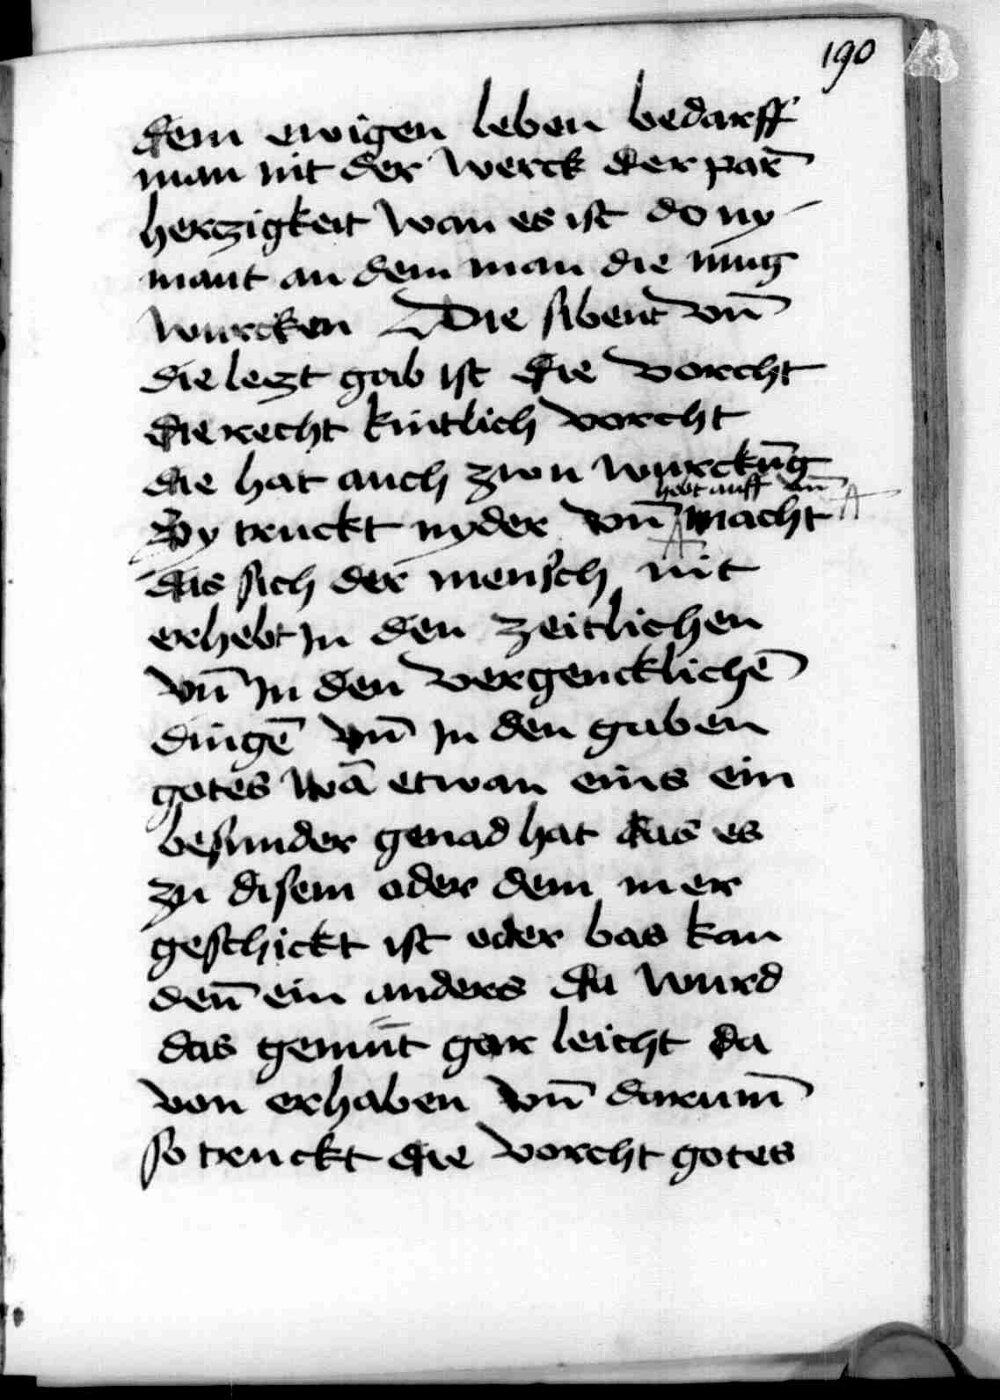 190
dem ewigen leben bedarff
man nit der werck der par̄
herzigkeit wan es ist do ny
mant an dem man die mug
wurcken Die sibent vn̄
die lezt gab ist die vorcht
die recht kintlich vorcht
die hat auch zwu wurckūg
hebt auff vn̄
Sy truckt nyder vn̄ macht
das sich der mensch nit
erhebt jn den zeitlichen
vn̄ jn den vergencklichē
dingē vn̄ jn den gaben
gotes wā etwan eins ein
besunder genad hat das es
zu disem oder dem mer
geschickt ist oder bas kan
den̄ ein anders da wurd
das gemüt gar leicht da
von erhaben vn̄ darum̄
so truckt die vorcht gotes